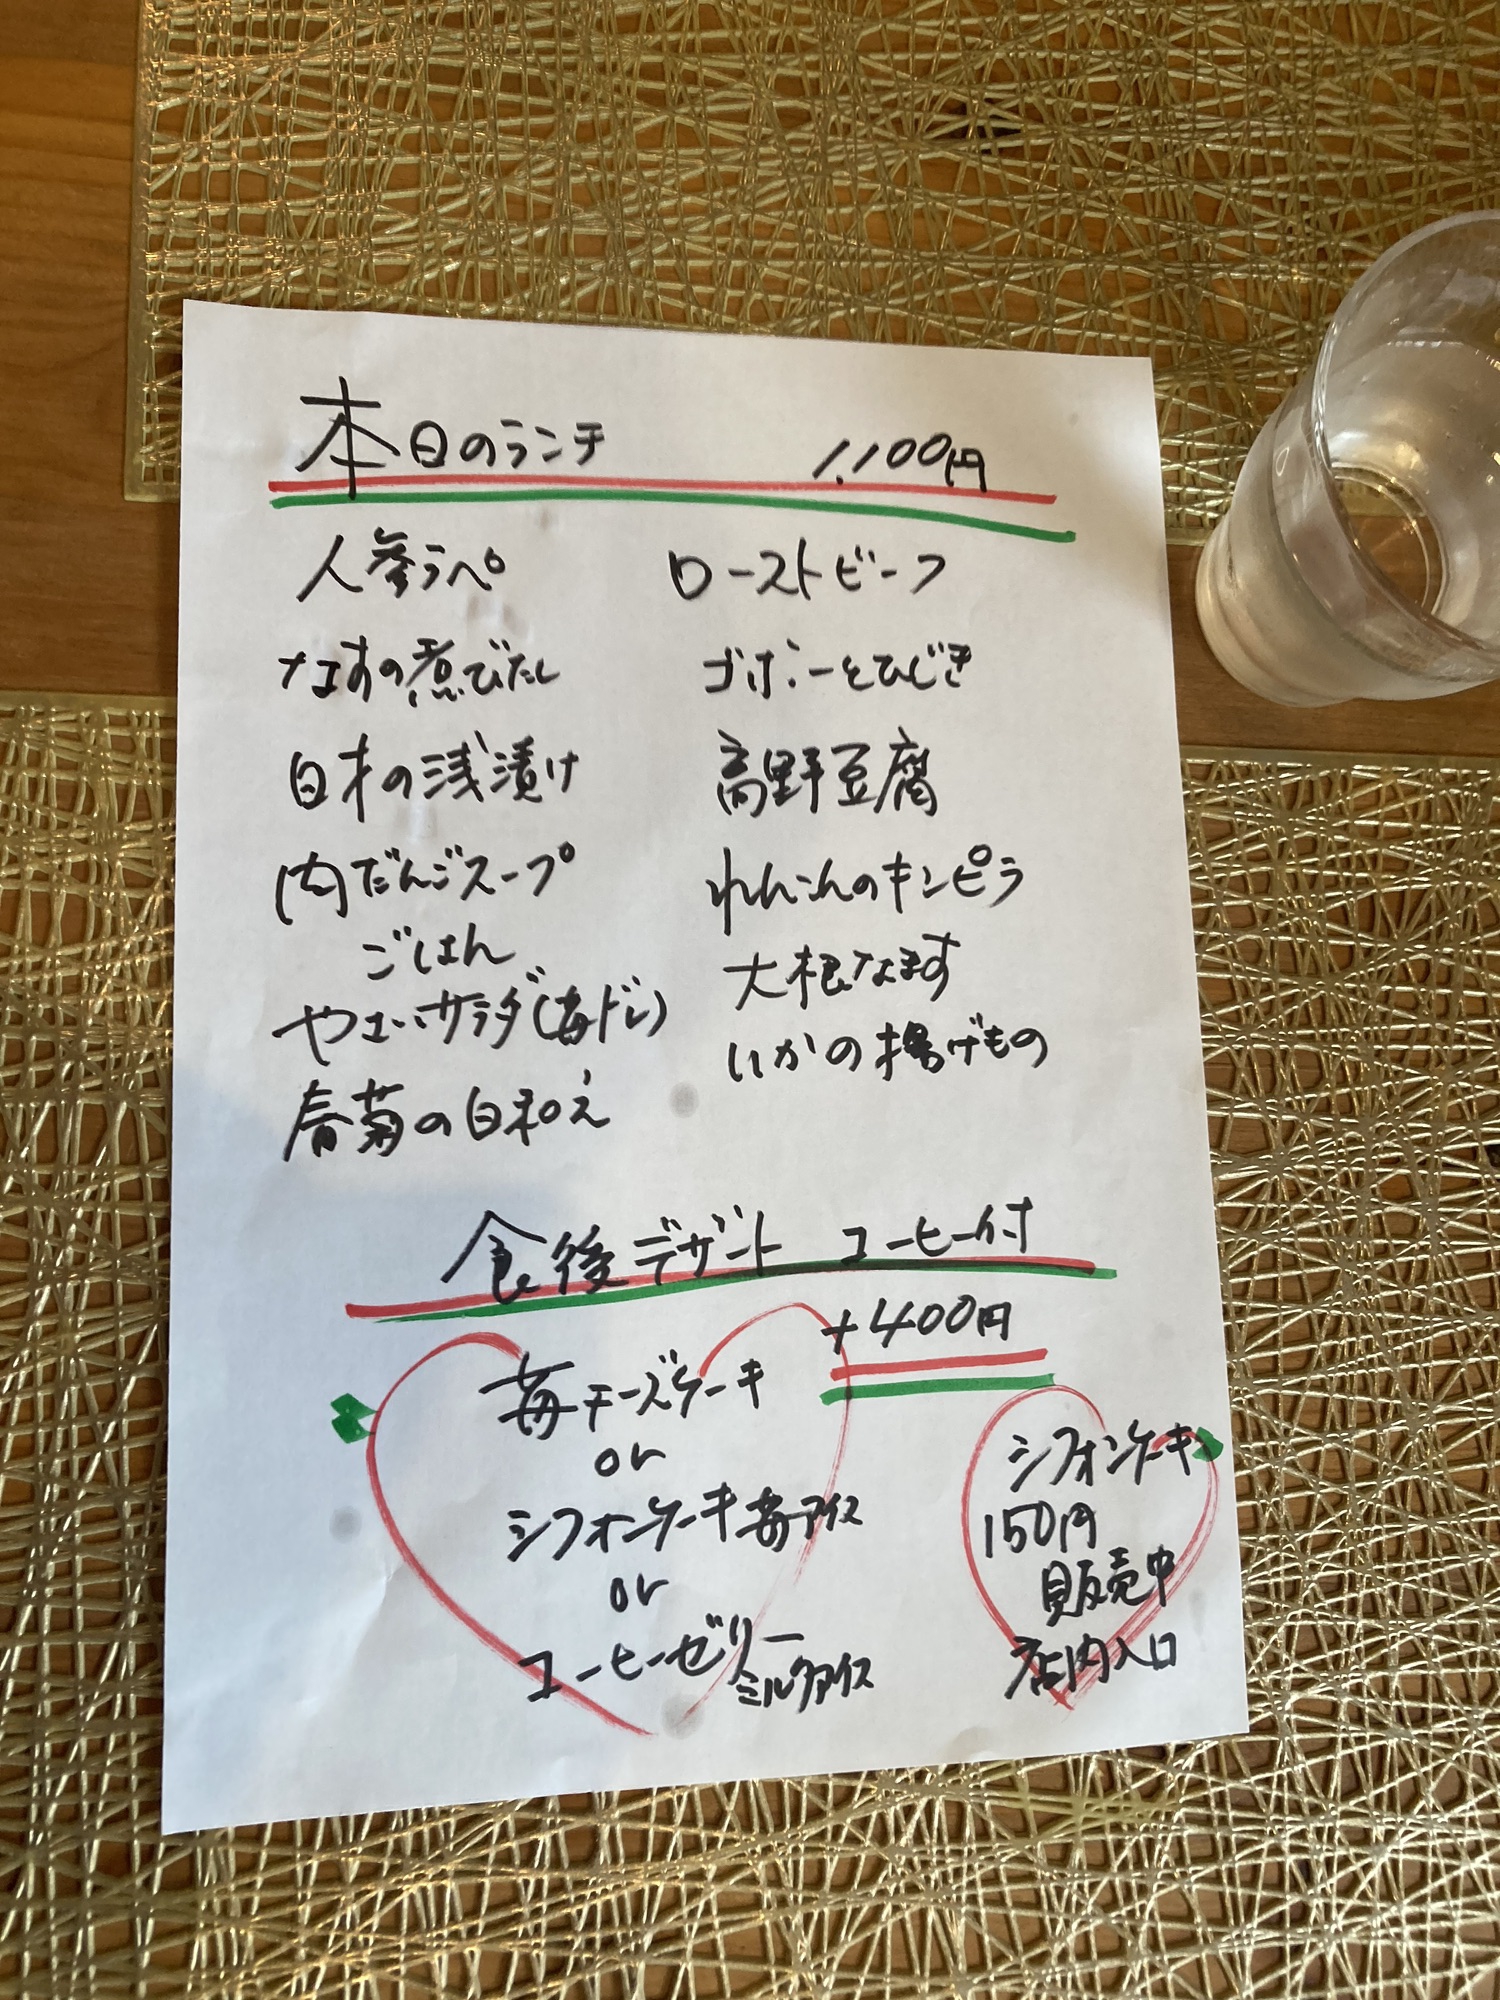 本日のランチ 1,100円
人参ラペ
なすの煮びたし
白才の浅漬け
肉だんごスープ
ごはん
やさいサラダ(苺ドレ)
春菊の白和え
ローストビーフ
ゴボーとひじき
高野豆腐
れんこんのキンピラ
大根なます
いかの揚げもの
食後デザート コーヒー付
+400円
苺チーズケーキ
or
シフォンケーキ苺アイス
or
コーヒーゼリー
ミルクアイス
シフォンケーキ
150円
販売中
店内入口